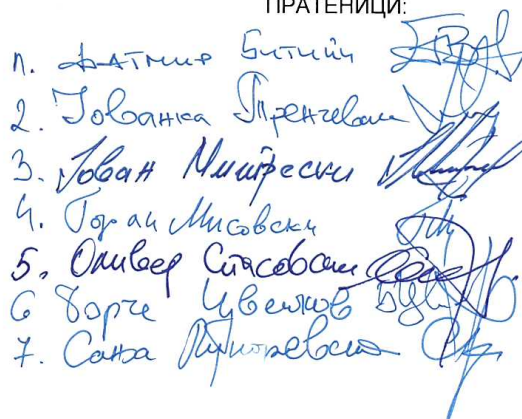 ПРАТЕНИЦИ:
1. Фатмир Битиќи
2. Јованка Тренчевска
3. Јован Митрески
4. Горан Мисовски
5. Оливер Спасовски
6 Ѓорче Цветков
7. Сања